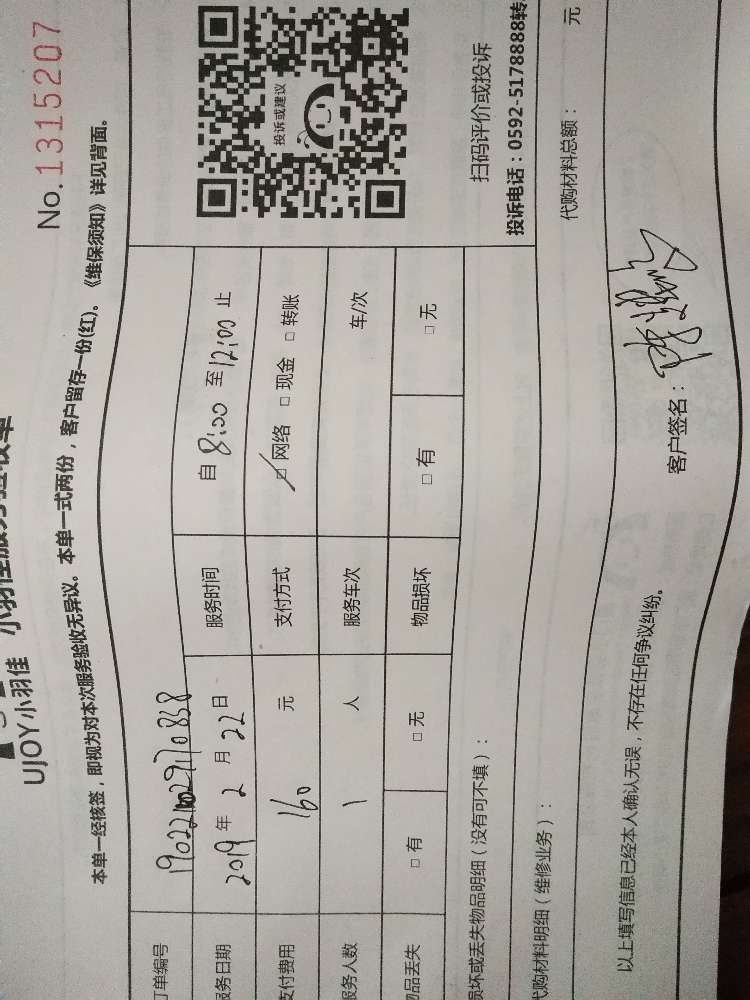 No.1315207
UJOY小羽佳 小羽佳服务验收单
本单一经核签，即视为对本次服务验收无异议。本单一式两份，客户留存一份(红)。《维保须知》详见背面。
订单编号
服务日期 2019 年 2 月 22 日 服务时间 自 8:00 至 12:00 止
支付费用 160 元 支付方式 ☑ 网络 □ 现金 □ 转账
服务人数 1 人 服务车次 车/次
物品丢失 □ 有 □ 无 物品损坏 □ 有 □ 无
投诉或建议
扫码评价或投诉
投诉电话：0592-5178888转
损坏或丢失物品明细（没有可不填）：
代购材料明细（维修业务）： 代购材料总额： 元
以上填写信息已经本人确认无误，不存在任何争议纠纷。 客户签名：